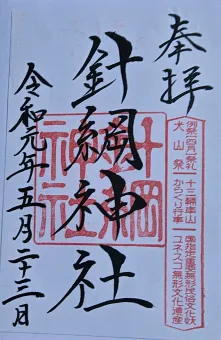 奉拝
例祭(四月)祭礼 十三輌車山 国指定重要無形民俗文化財
犬山祭 からくり行事 ユネスコ無形文化遺産
針綱神社
針綱神社
令和元年五月二十三日